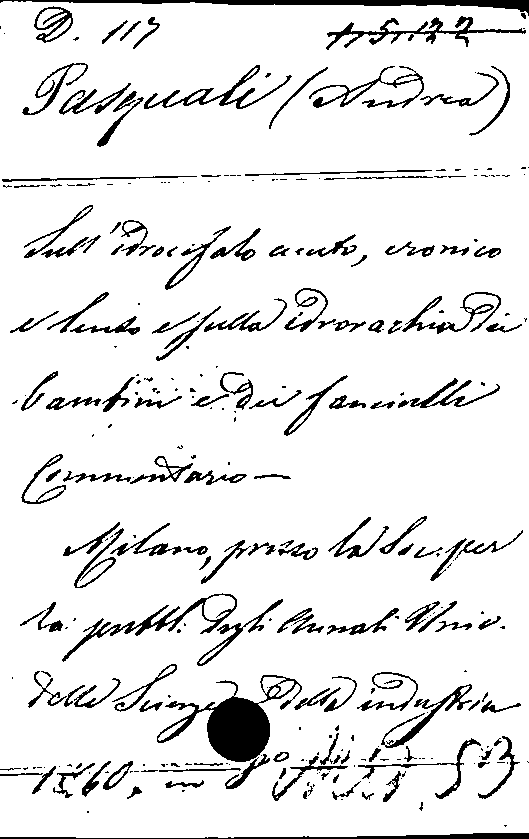 D. 117 1.5.122
Pasquali (Andrea)
Sull'idrocefalo acuto, cronico
e lento e sulla idrorachia dei
bambini e dei fanciulli
Commentario —
Milano, presso la Soc. per
la pubbl. degli Annali Univ.
delle Scienze e della industria
1860, in 8vo